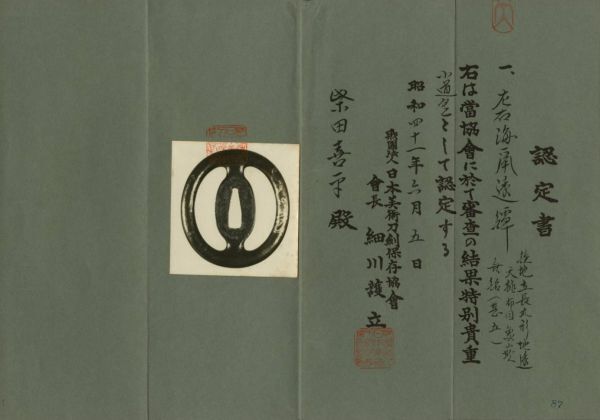 認定書
一、左右海鼠透鐔
鉄地竪長丸形地透
無銘(甚五)
右は當協會に於て審査の結果特別貴重
小道具として認定する
昭和四十一年六月五日
財團法人日本美術刀劍保存協會
會長 細川護立
柴田喜平殿
87